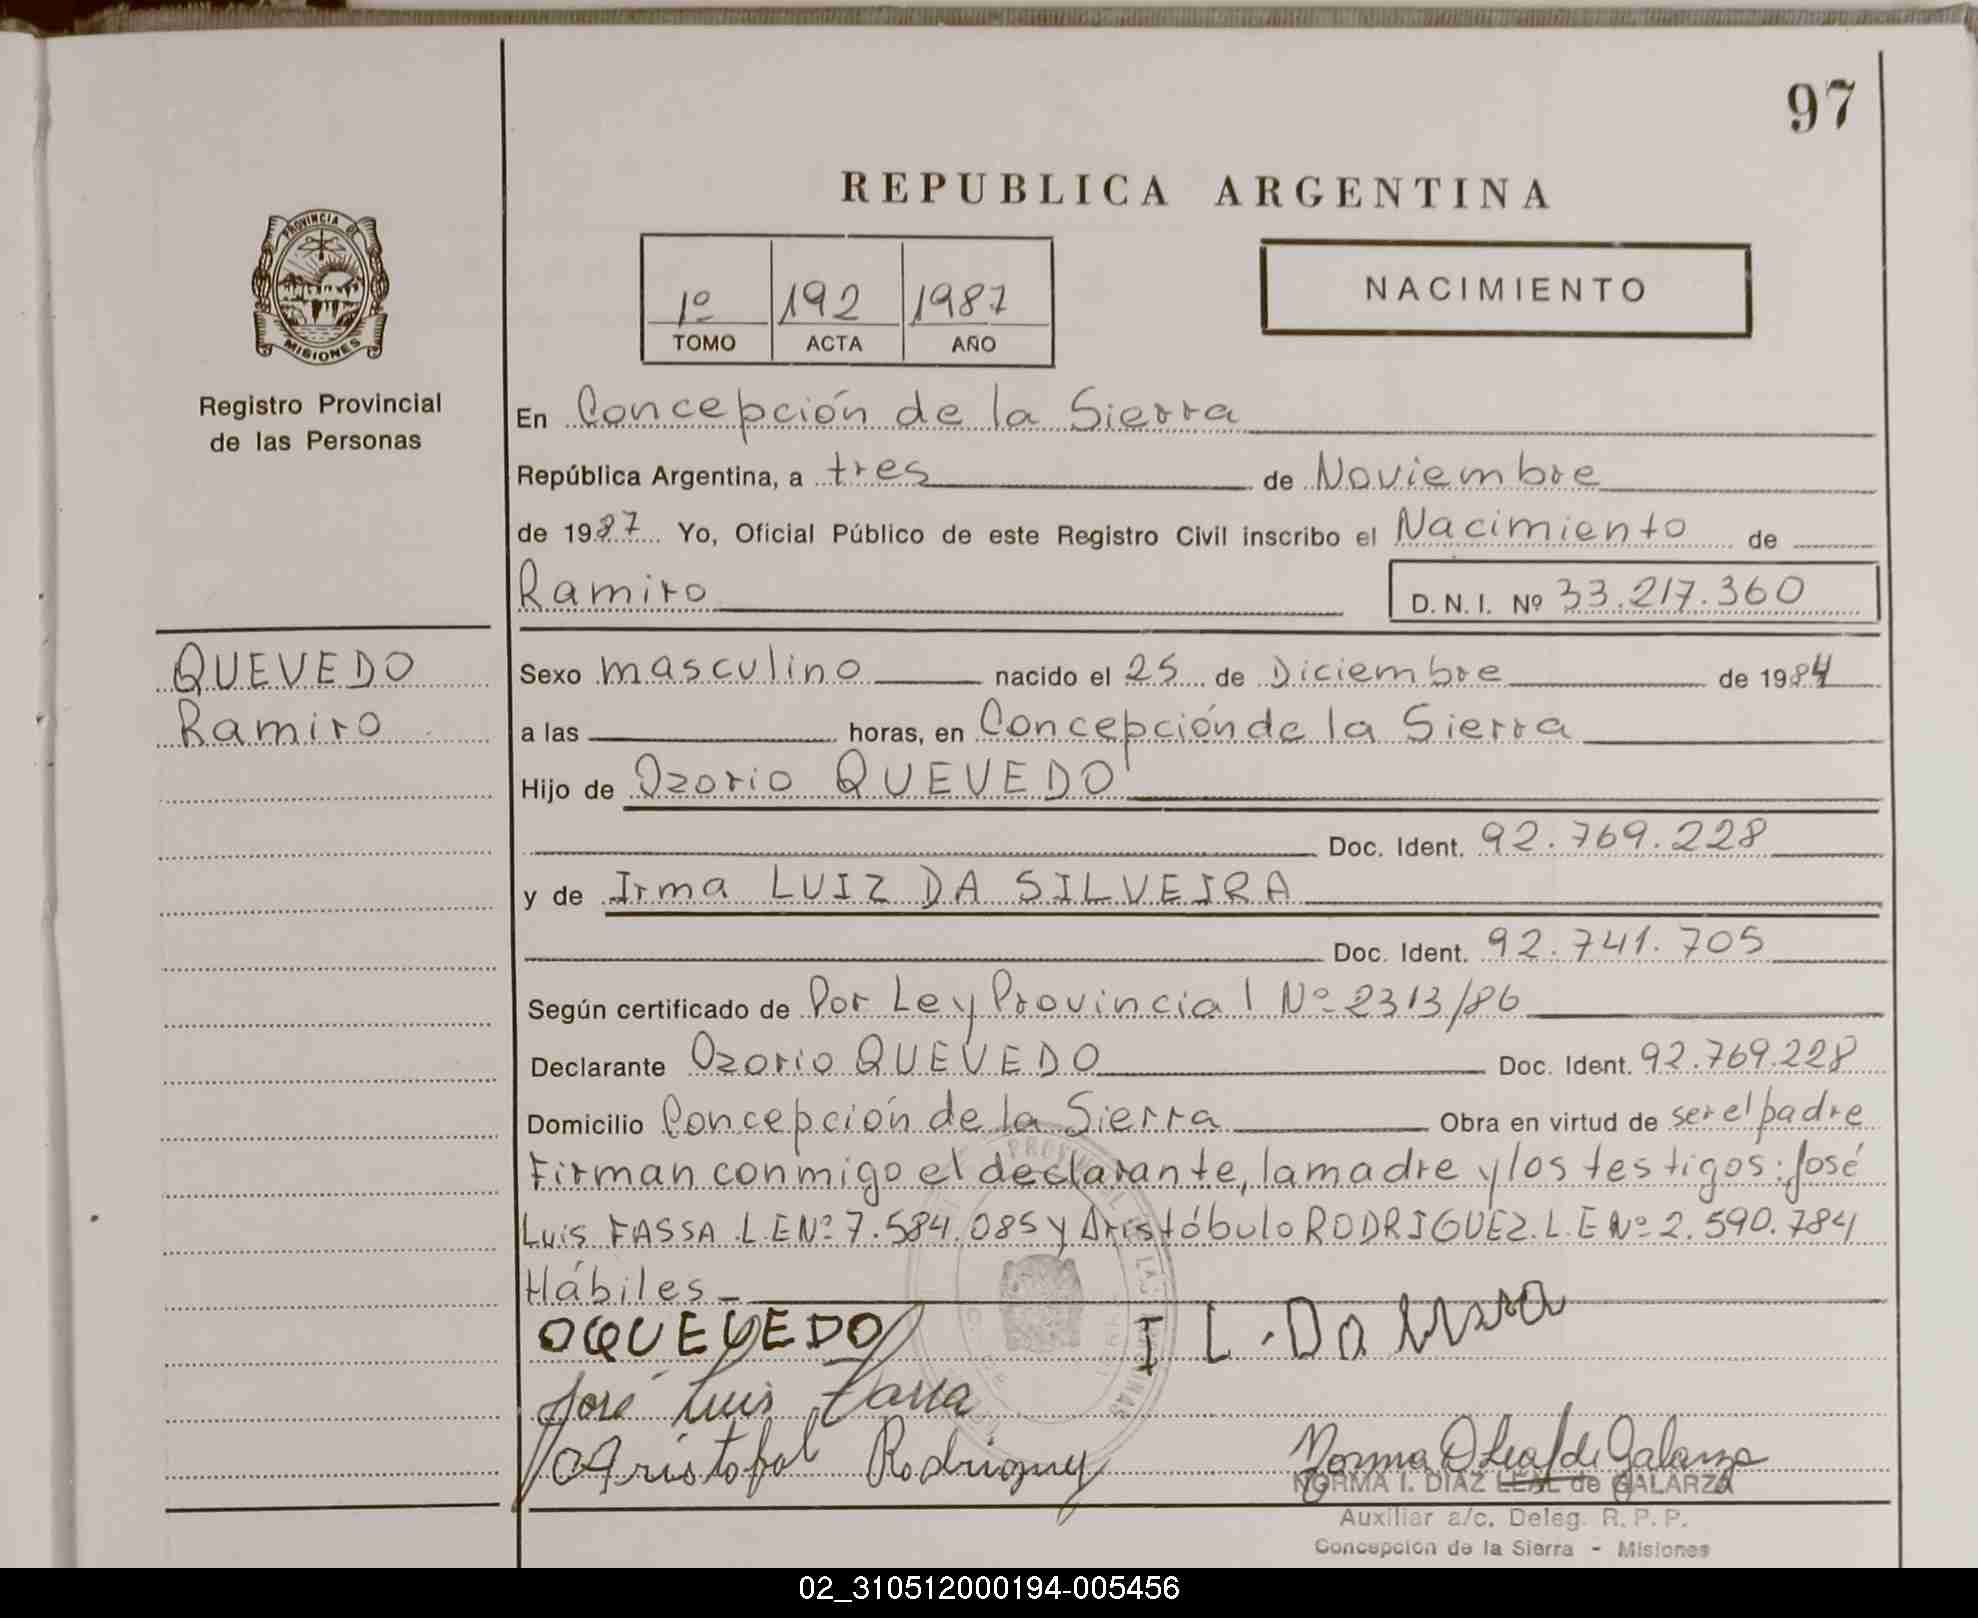 97
REPUBLICA ARGENTINA
PROVINCIA DE
MISIONES
Registro Provincial
de las Personas
1º 192 1987
TOMO ACTA AÑO
NACIMIENTO
En Concepción de la Sierra
República Argentina, a tres de Noviembre
de 1987 Yo, Oficial Público de este Registro Civil inscribo el Nacimiento de
Ramiro D. N. I. Nº 33.217.360
QUEVEDO
Ramiro
Sexo masculino nacido el 25 de Diciembre de 1984
a las horas, en Concepción de la Sierra
Hijo de Ozorio QUEVEDO
Doc. Ident. 92.769.228
y de Irma LUIZ DA SILVEIRA
Doc. Ident. 92.741.705
Según certificado de Por Ley Provincial Nº 2313/86
Declarante Ozorio QUEVEDO Doc. Ident. 92.769.228
Domicilio Concepción de la Sierra Obra en virtud de ser el padre
Firman conmigo el declarante, la madre y los testigos: José
Luis FASSA L.E Nº 7.584.085 y Aristóbulo RODRIGUEZ. L.E Nº 2.590.784
Hábiles
OQUEVEDO I L. Da
José Luis Fassa
Aristobol Rodriguez Norma D Leal de Galarza
NORMA I. DIAZ LEAL de GALARZA
Auxiliar a/c. Deleg. R. P. P.
Concepción de la Sierra - Misiones
02_310512000194-005456